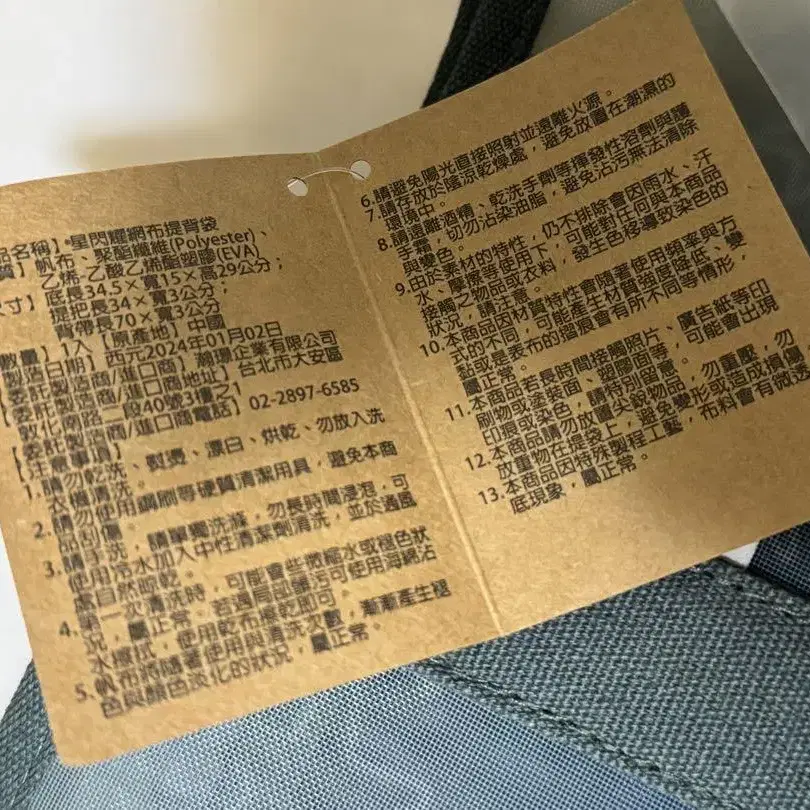 品名稱】星閃耀網布提背袋
質】帆布、聚酯纖維(Polyester)、
乙烯-乙酸乙烯酯塑膠(EVA)
尺寸】底長34.5×寬15×高29公分；
提把長34×寬3公分；
背帶長70×寬3公分；
數量】1入【原產地】中國
【製造日期】西元2024年01月02日
【委託製造商/進口商】瀚璟企業有限公司
【委託製造商/進口商地址】台北市大安區
敦化南路二段40號3樓之1
【委託製造商/進口商電話】02-2897-6585
【注意事項】
1.請勿乾洗、熨燙、漂白、烘乾、勿放入洗
衣機清洗。
2.請勿使用鋼刷等硬質清潔用具，避免本商
品刮傷。
3.請手洗，請單獨洗滌，勿長時間浸泡，可
使用冷水加入中性清潔劑清洗，並於通風
處自然晾乾。
4.第一次清洗時，可能會些微縮水或褪色狀
況，屬正常。若遇局部髒污可使用海綿沾
水擦拭，使用乾布擦乾即可。
5.帆布將隨著使用與清洗次數，漸漸產生褪
色與顏色淡化的狀況，屬正常。
6.請避免陽光直接照射並遠離火源。
7.請存放於陰涼乾燥處，避免放置在潮濕的
環境中。
8.請遠離酒精、乾洗手劑等揮發性溶劑與護
手霜，切勿沾染油脂，避免沾污無法清除
與變色。
9.由於素材的特性，仍不排除會因雨水、汗
水、摩擦等使用下，可能對任何與本商品
接觸之物品或衣料，發生色移導致染色的
狀況，請注意。
10.本商品因材質特性會隨著使用頻率與方
式的不同，可能產生材質強度降低、變
黏或是表布的摺痕會有所不同等情形，
屬正常。
11.本商品若長時間接觸照片、廣告紙等印
刷物或塗裝面、塑膠面等，可能會出現
印痕或染色，請特別留意。
12.本商品請勿放置尖銳物品，勿重壓，勿
放重物在提袋上，避免變形或造成損傷
13.本商品因特殊製程工藝，布料會有微透
底現象，屬正常。